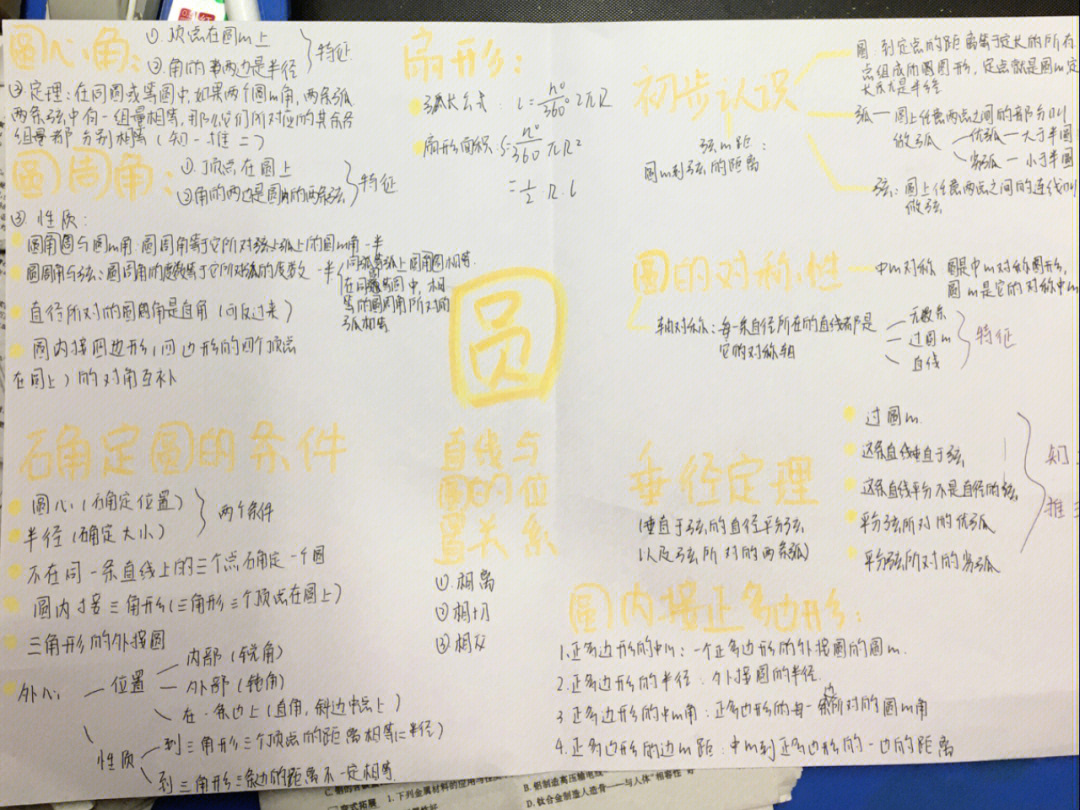 圆心角：
①.顶点在圆心上
②.角的两边是半径
特征
③定理：在同圆或等圆中，如果两个圆心角，两条弧
两条弦中有一组量相等，那么它们所对应的其余各
组量都分别相等（知一推二）
圆周角：
①.顶点在圆上
②角的两边是圆的两条弦
特征
③ 性质：
圆周角与圆心角：圆周角等于它所对弦上弧上的圆心角一半
圆周角与弧：圆周角的度数等于它所对弧的度数之一半
同弧等弧上圆周角相等.
在同圆等圆中，相
等的圆周角所对的
弧相等
直径所对的圆周角是直角（可反过来）
圆内接四边形（四边形的四个顶点
在圆上）的对角互补
扇形：
弧长公式：l=n°/360° 2πR
扇形面积：S=n°/360 πR²
=1/2·R·l
初步认识
圆：到定点的距离等于定长的所有
点组成的图形，定点就是圆心定
长就是半径
弧—圆上任意两点之间的部分叫
做弧
优弧—大于半圆
劣弧—小于半圆
弦：圆上任意两点之间的连线叫
做弦
弦心距：
圆心到弦的距离
圆的对称性
中心对称
圆是中心对称图形，
圆心是它的对称中心
轴对称：每一条直径所在的直线都是
它的对称轴
无数条
过圆心
直线
特征
圆
确定圆的条件
圆心（确定位置）
半径（确定大小）
两个条件
不在同一条直线上的三个点确定一个圆
圆内接三角形（三角形三个顶点在圆上）
三角形的外接圆
外心：
位置
内部（锐角）
外部（钝角）
在一条边上（直角，斜边中点上）
性质
到三角形三个顶点的距离相等（=半径）
到三角形三条边的距离不一定相等.
直线与
圆的位
置关系
①相离
②相切
③相交
垂径定理
（垂直于弦的直径平分弦
以及弦所对的两条弧）
过圆心
这条直线垂直于弦
这条直线平分不是直径的弦
平分弦所对的优弧
平分弦所对的劣弧
知
推
圆内接正多边形：
1.正多边形的中心：一个正多边形的外接圆的圆心.
2.正多边形的半径：外接圆的半径.
3 正多边形的中心角：正多边形的每一条边所对的圆心角
4.正多边形的边心距：中心到正多边形的一边的距离
1.下列金属材料的应用与性
B.铝制造高压输电线
D.钛合金制造人造骨——与人体"相容性"好